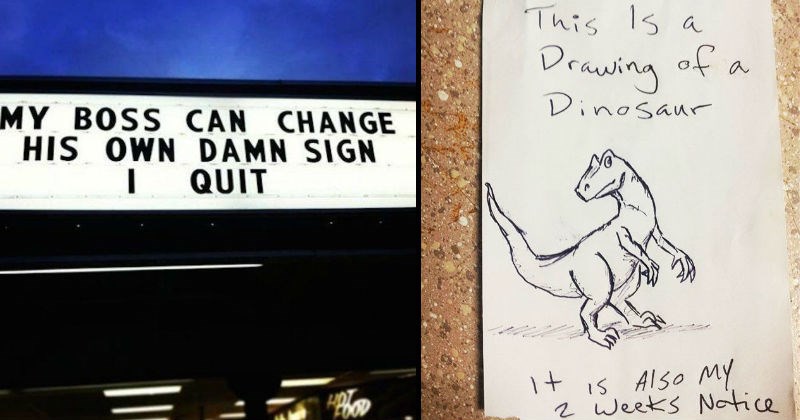 MY BOSS CAN CHANGE
HIS OWN DAMN SIGN
I QUIT
HOT
FOOD
This Is a
Drawing of a
Dinosaur
It is Also My
2 Weeks Notice